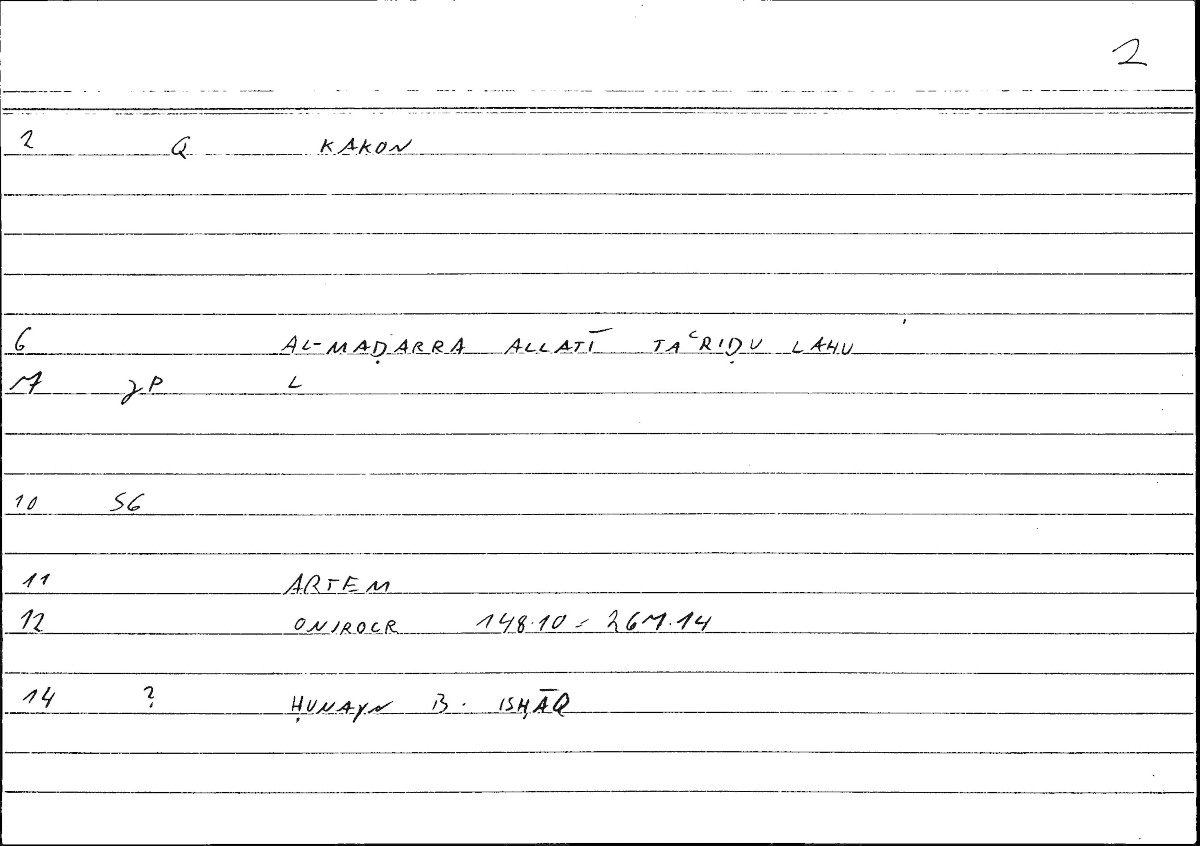 2
2 Q KAKON
6 AL-MAḌARRA ALLATĪ TAʿRIḌU LAHU
7 γP L
10 SG
11 ARTEM
12 ONIROCR 148.10 = 267.14
14 ? ḤUNAYN B. ISḤĀQ